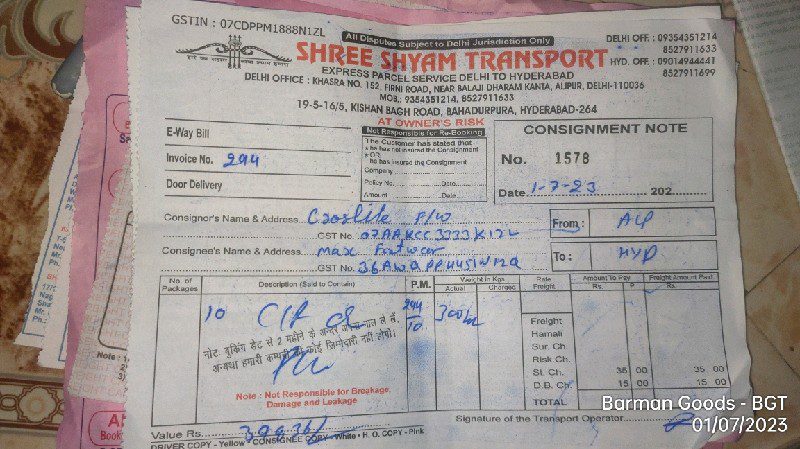 GSTIN : 07CDPPM1888N1ZL
All Disputes Subject to Delhi Jurisdiction Only
DELHI OFF. : 09354351214
8527911633
SHREE SHYAM TRANSPORT
HYD. OFF. : 09014944441
8527911699
EXPRESS PARCEL SERVICE DELHI TO HYDERABAD
DELHI OFFICE : KHASRA NO. 152, FIRNI ROAD, NEAR BALAJI DHARAM KANTA, ALIPUR, DELHI-110036
MOB.: 9354351214, 8527911633
19-5-16/5, KISHAN BAGH ROAD, BAHADURPURA, HYDERABAD-264
AT OWNER'S RISK
Not Responsible for Re-Booking
E-Way Bill
Invoice No. 294
Door Delivery
The Customer has stated that
he has not insured the Consignment
OR
he has insured the Consignment
Company
Policy No. Date
Amount Date
CONSIGNMENT NOTE
No. 1578
Date 1-7-23 202
Consignor's Name & Address
GST No.
From :
Consignee's Name & Address
GST No.
To : HYD
No. of Packages
Description (Said to Contain)
P.M.
Weight in Kgs.
Actual
Charged
Rate
Freight
Amount To Pay
Rs. P
Freight Amount Paid
Rs.
10
294
10
नोट: बुकिंग डेट से 2 महीने के अन्दर अपना माल ले लें,
अन्यथा हमारी कम्पनी की कोई जिम्मेदारी नहीं होगी।
Freight
Hamali
Sur. Ch.
Risk Ch.
St. Ch. 35 00 35 00
D.B. Ch. 15 00 15 00
TOTAL
Note : Not Responsible for Breakage,
Damage and Leakage
Value Rs.
Signature of the Transport Operator
DRIVER COPY - Yellow * CONSIGNEE COPY - White * H.O. COPY - Pink
Barman Goods - BGT
01/07/2023